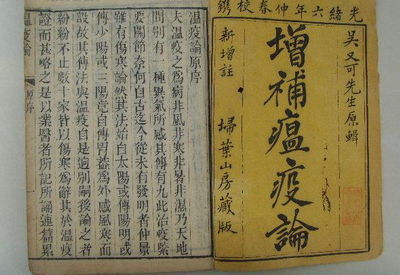 光緒六年仲春校鐫
吳又可先生原輯
增補瘟疫論
新增註
掃葉山房藏版
溫疫論原序
夫溫疫之為病非風非寒非暑非濕乃天地
間別有一種異氣所感其傳有九此治疫緊
要關節奈何自古迄今從未有發明者仲景
雖有傷寒論然其法始自太陽或傳陽明或
傳少陽或三陽竟自傳胃蓋為外感風寒而
設故其傳法與溫疫自是迥別嗣後論之者
紛紛不止數十家皆以傷寒為辭其於溫疫
證而甚略之是以業醫者所記所誦連篇累
溫疫論